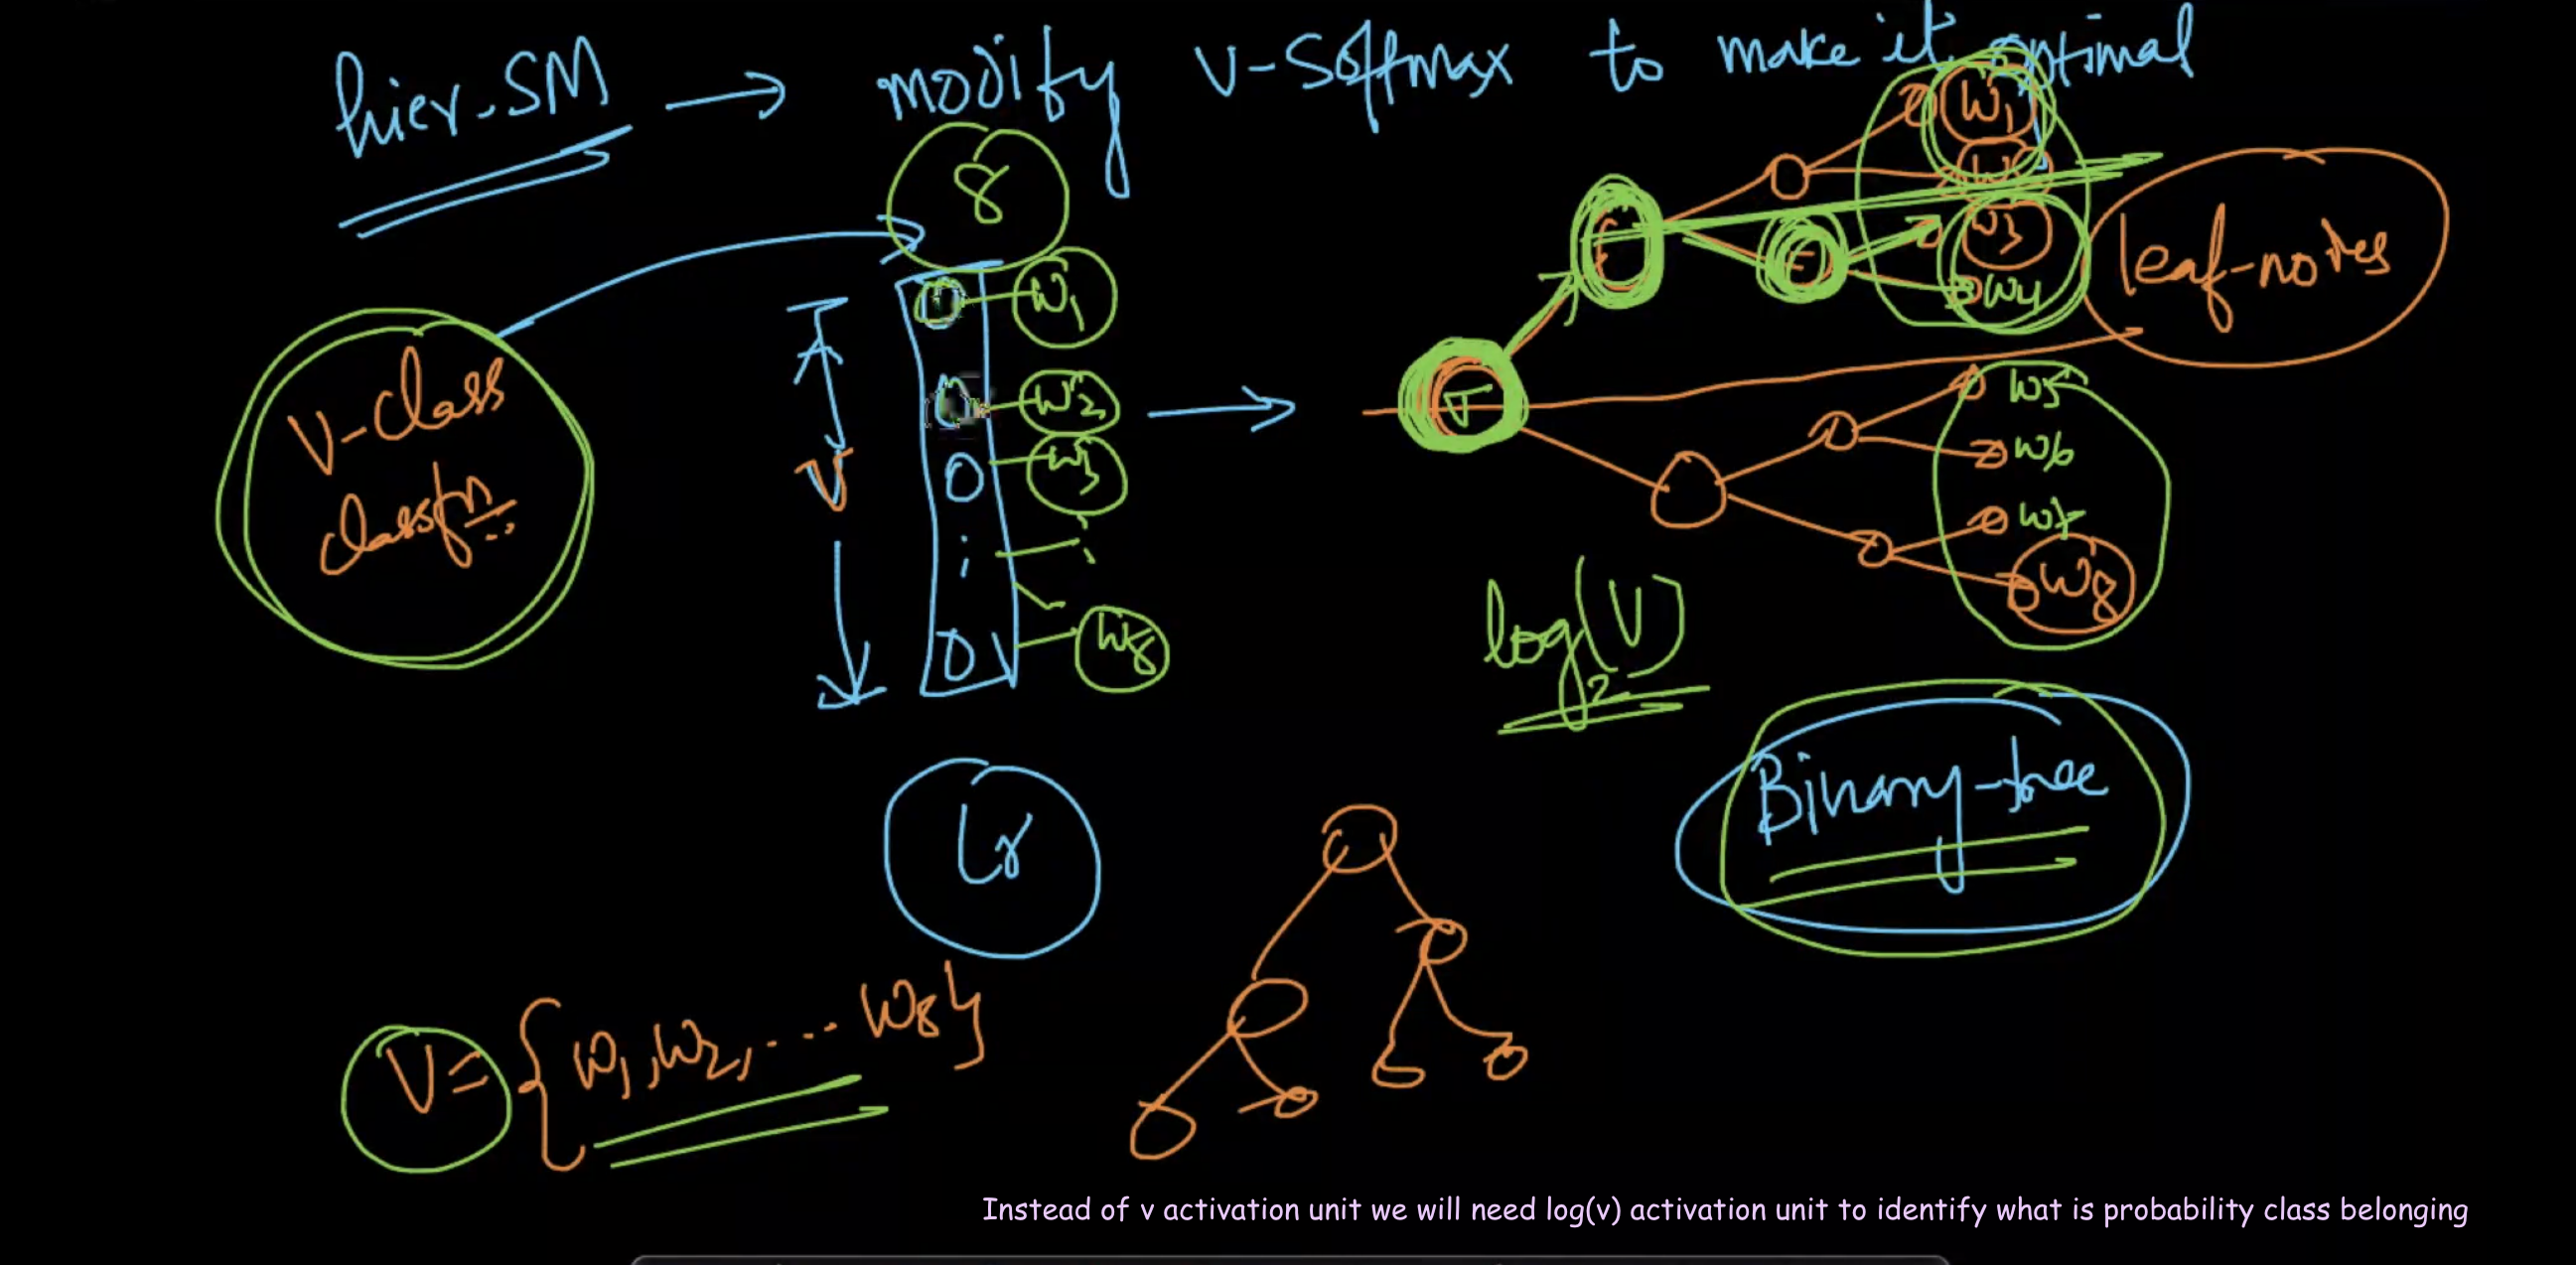 hier-SM → modify V-Softmax to make it optimal
8
V-class
classfn
V
w1
w2
w3
w8
V
w1
w
w3
w4
leaf-notes
w5
w6
w7
w8
log2(V)
Binary-tree
V = {w1, w2, .... w8}
Instead of v activation unit we will need log(v) activation unit to identify what is probability class belonging